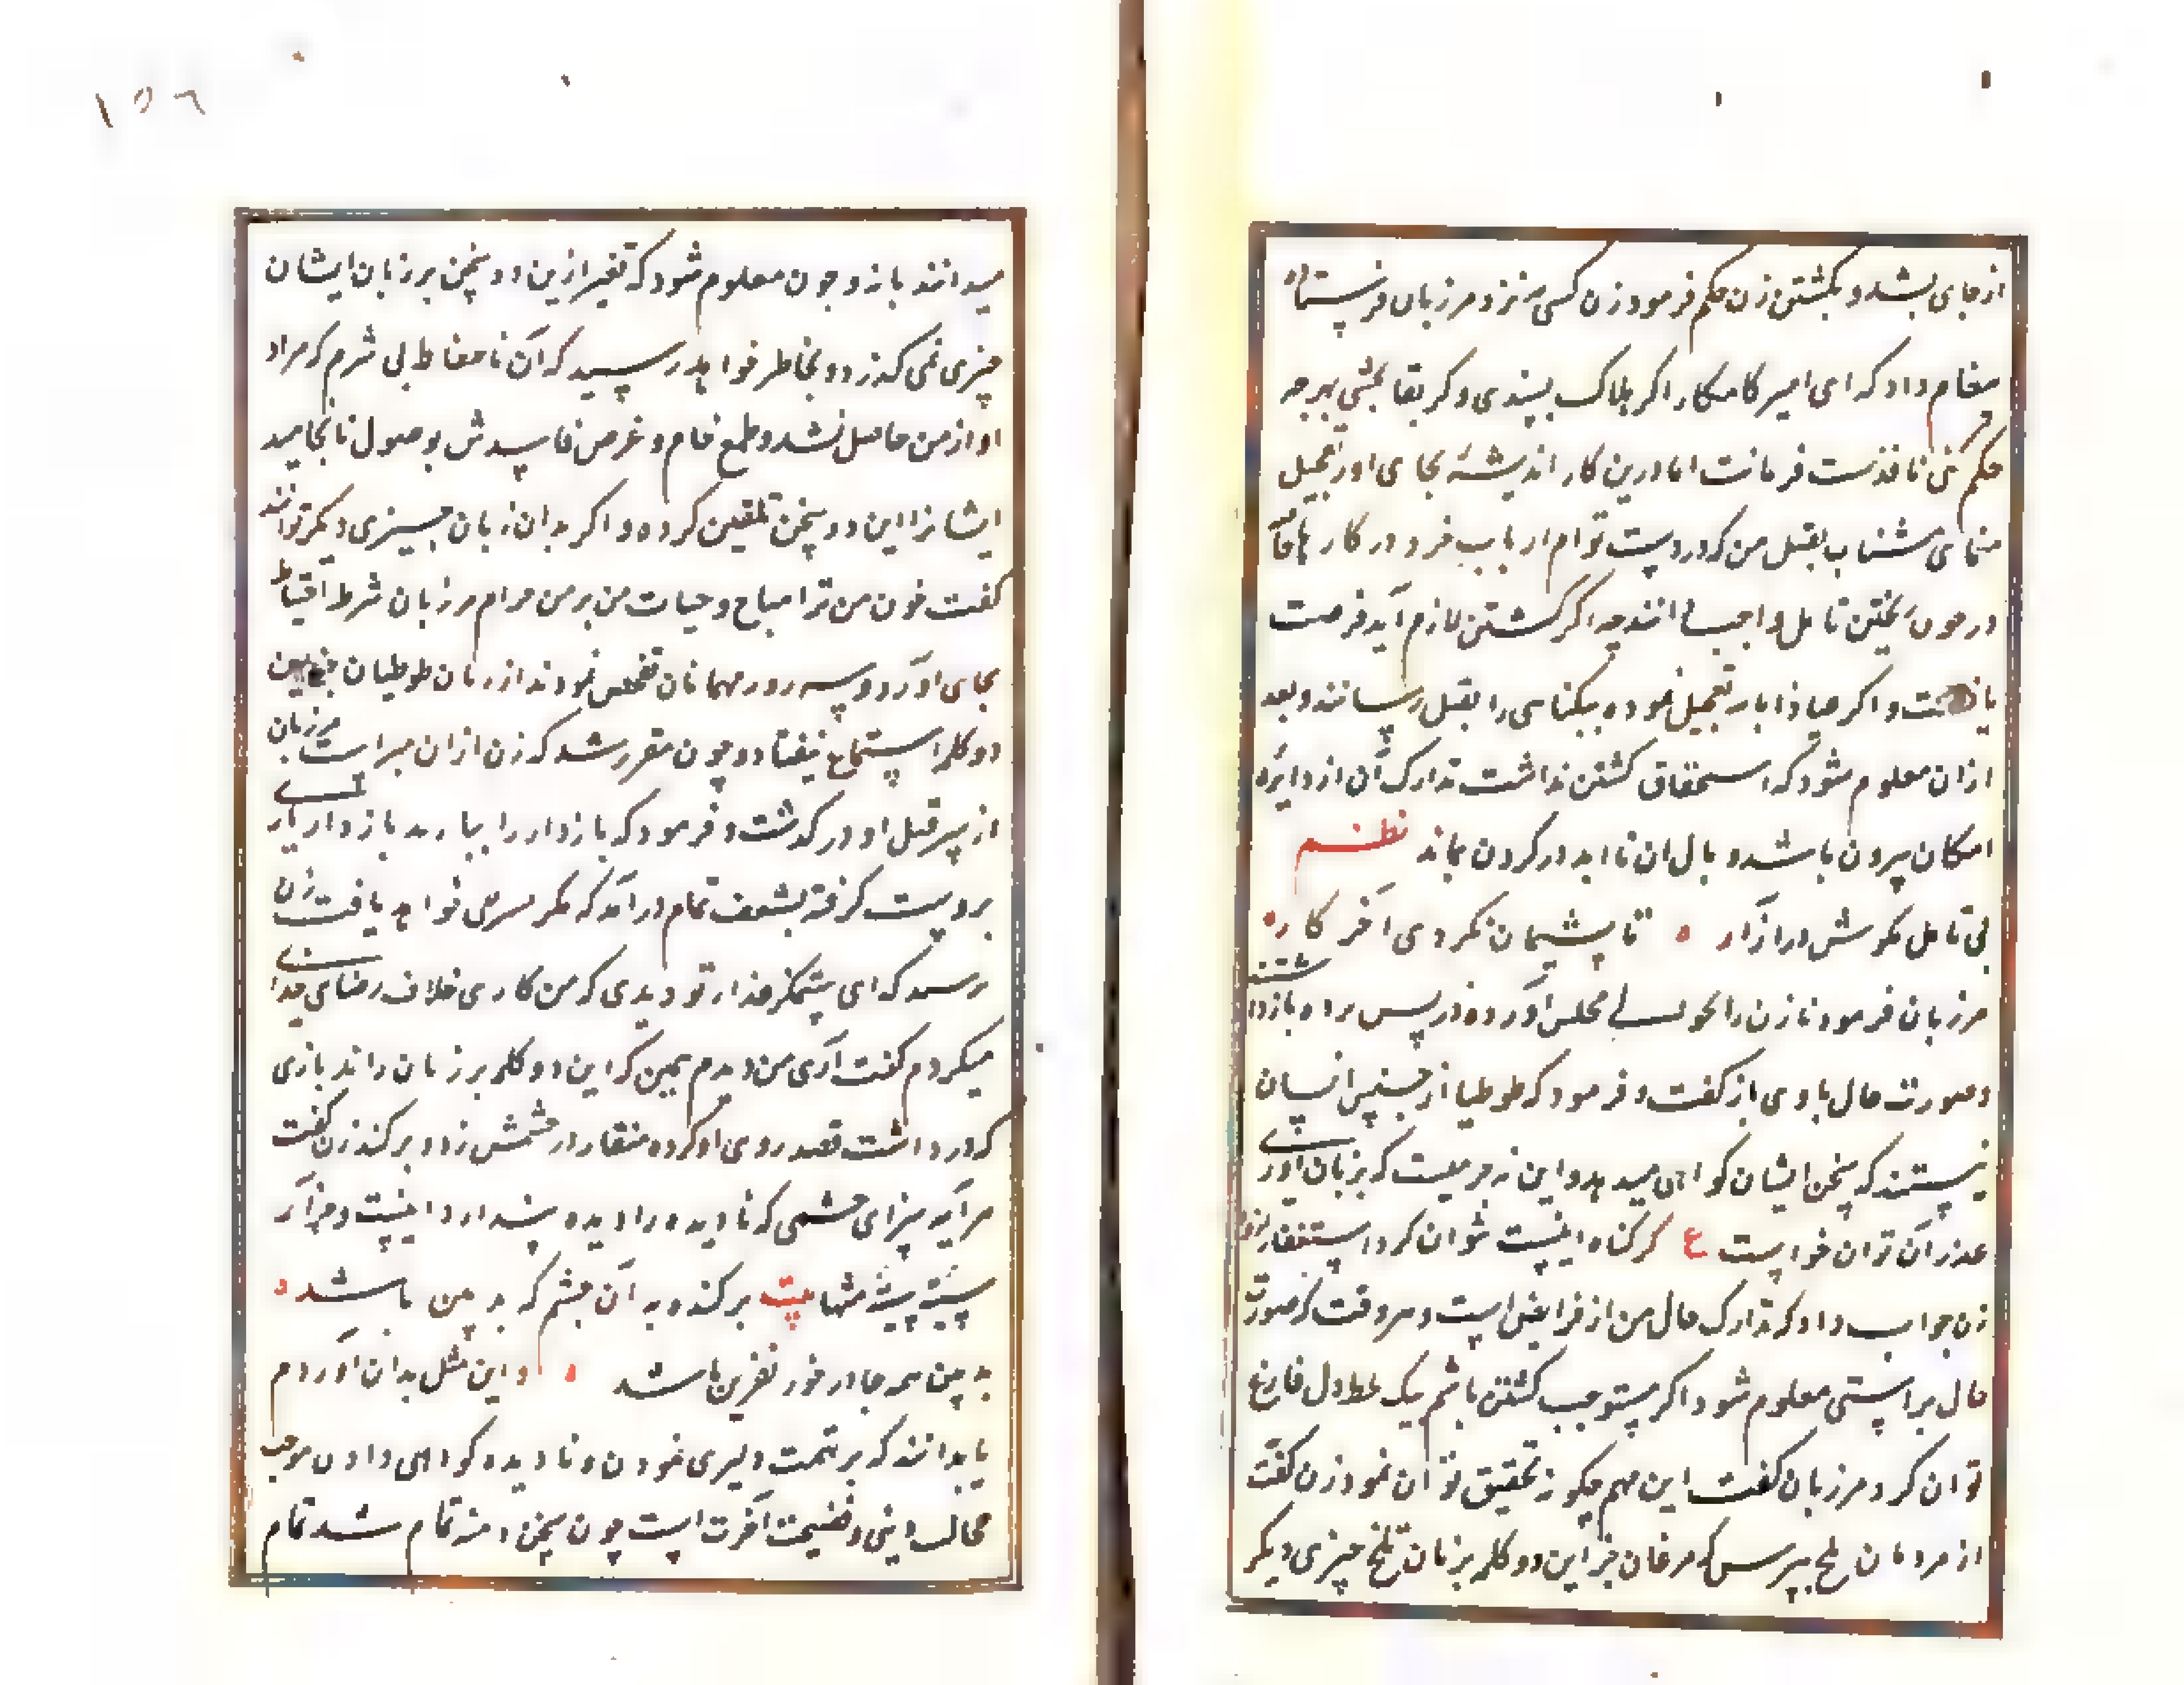 از جای بشد و بکشتن زن حکم فرمود زن کسی نزد مرزبان فرستاد
پیغام داد که ای امیر کامکار اگر هلاک پسندی و کر بقا بخشی بهرچه
حکم کنی نافذست فرمانت اما درین کار اندیشهٔ بجای اور تعجیل
منمای مشتاب بقتل من که در دست توام ارباب خرد در کارها خاصه
در خون ریختن تامل واجب دانند چه اگر کشتن لازم آید فرصت
باقیست و اگر عیاذا بالله تعجیل نموده بیکناهی را بقتل رسانند و بعد
ازان معلوم شود که استحقاق کشتن نداشت تدارک آن از دایره
امکان بیرون باشد و بال ان تا ابد در کردن بماند نظم
بی تامل مکوش در آزار تا پشیمان نکردی آخر کار
مرزبان فرمود تا زن را بحوالی مجلس آورده در پس پرده بازداشتند
و صورت حال با وی باز کفت و فرمود که طوطیا از جنس انسان
نیستند که سخن ایشان کواهی میدهد و این نه جرمیست که بزبان آوری
عذر آن توان خواست ع کر کناه اینست نتوان کرد استغفار ازو
زن جواب داد که تدارک حال من از فرایض است و هر وقت که صورت
حال براستی معلوم شود اکر مستوجب کشتن باشم بیک لحظه دل فارغ
توان کرد مرزبان کفت این مهم چکونه تحقیق توان نمود زن کفت
از مردمان بلخ بپرس که مرغان جز این دو کلمه بزبان بلخ چیزی دیکر
۱۵۶
میدانند یا نه و چون معلوم شود که بغیر ازین دو سخن بر زبان ایشان
چیزی نمی کذرد و بخاطر خواهد رسید که آن ناحفاظ بی شرم که مراد
او از من حاصل نشد و طمع خام و غرض فاسدش بوصول نانجامید
ایشانرا این دو سخن تلقین کرده و اکر بدان زبان چیزی دیکر توانند
کفت خون من ترا مباح و حیات من بر من حرام مرزبان شرط احتیاط
بجای آورد و سه روز مهمانان تفحص نمودند از زبان طوطیان جز این
دو کلمه استماع نیفتاد و چون مقرر شد که زن ازان مبراست مرزبان
از سر قتل او در کذشت و فرمود که بازدار را بیارید بازدار بازی
بر دست کرفته بشعف تمام درآمد که مکر تشریفی خواهد یافت زن
پرسید که ای ستمکر غدار تو دیدی که من کاری خلاف رضای خدا
میکردم کفت آری من دیدم همین که این دو کلمه بر زبان راند بازی
که در دست داشت قصد روی او کرده منقار در چشمش زد و برکند زن کفت
هر آینه سزای چشمی که نادیده را دیده پندارد اینست و جزاء
سیئة سیئة مثلها بیت برکنده به آن چشم که بد بین باشد
بدبین همه جا در خور نفرین باشد و این مثل بدان آوردم
تا بدانند که بر تهمت دلیری نمودن و نادیده کواهی دادن موجب
خجالت دنیی و فضیحت آخرت است چون سخن دمنه تمام شد تمام